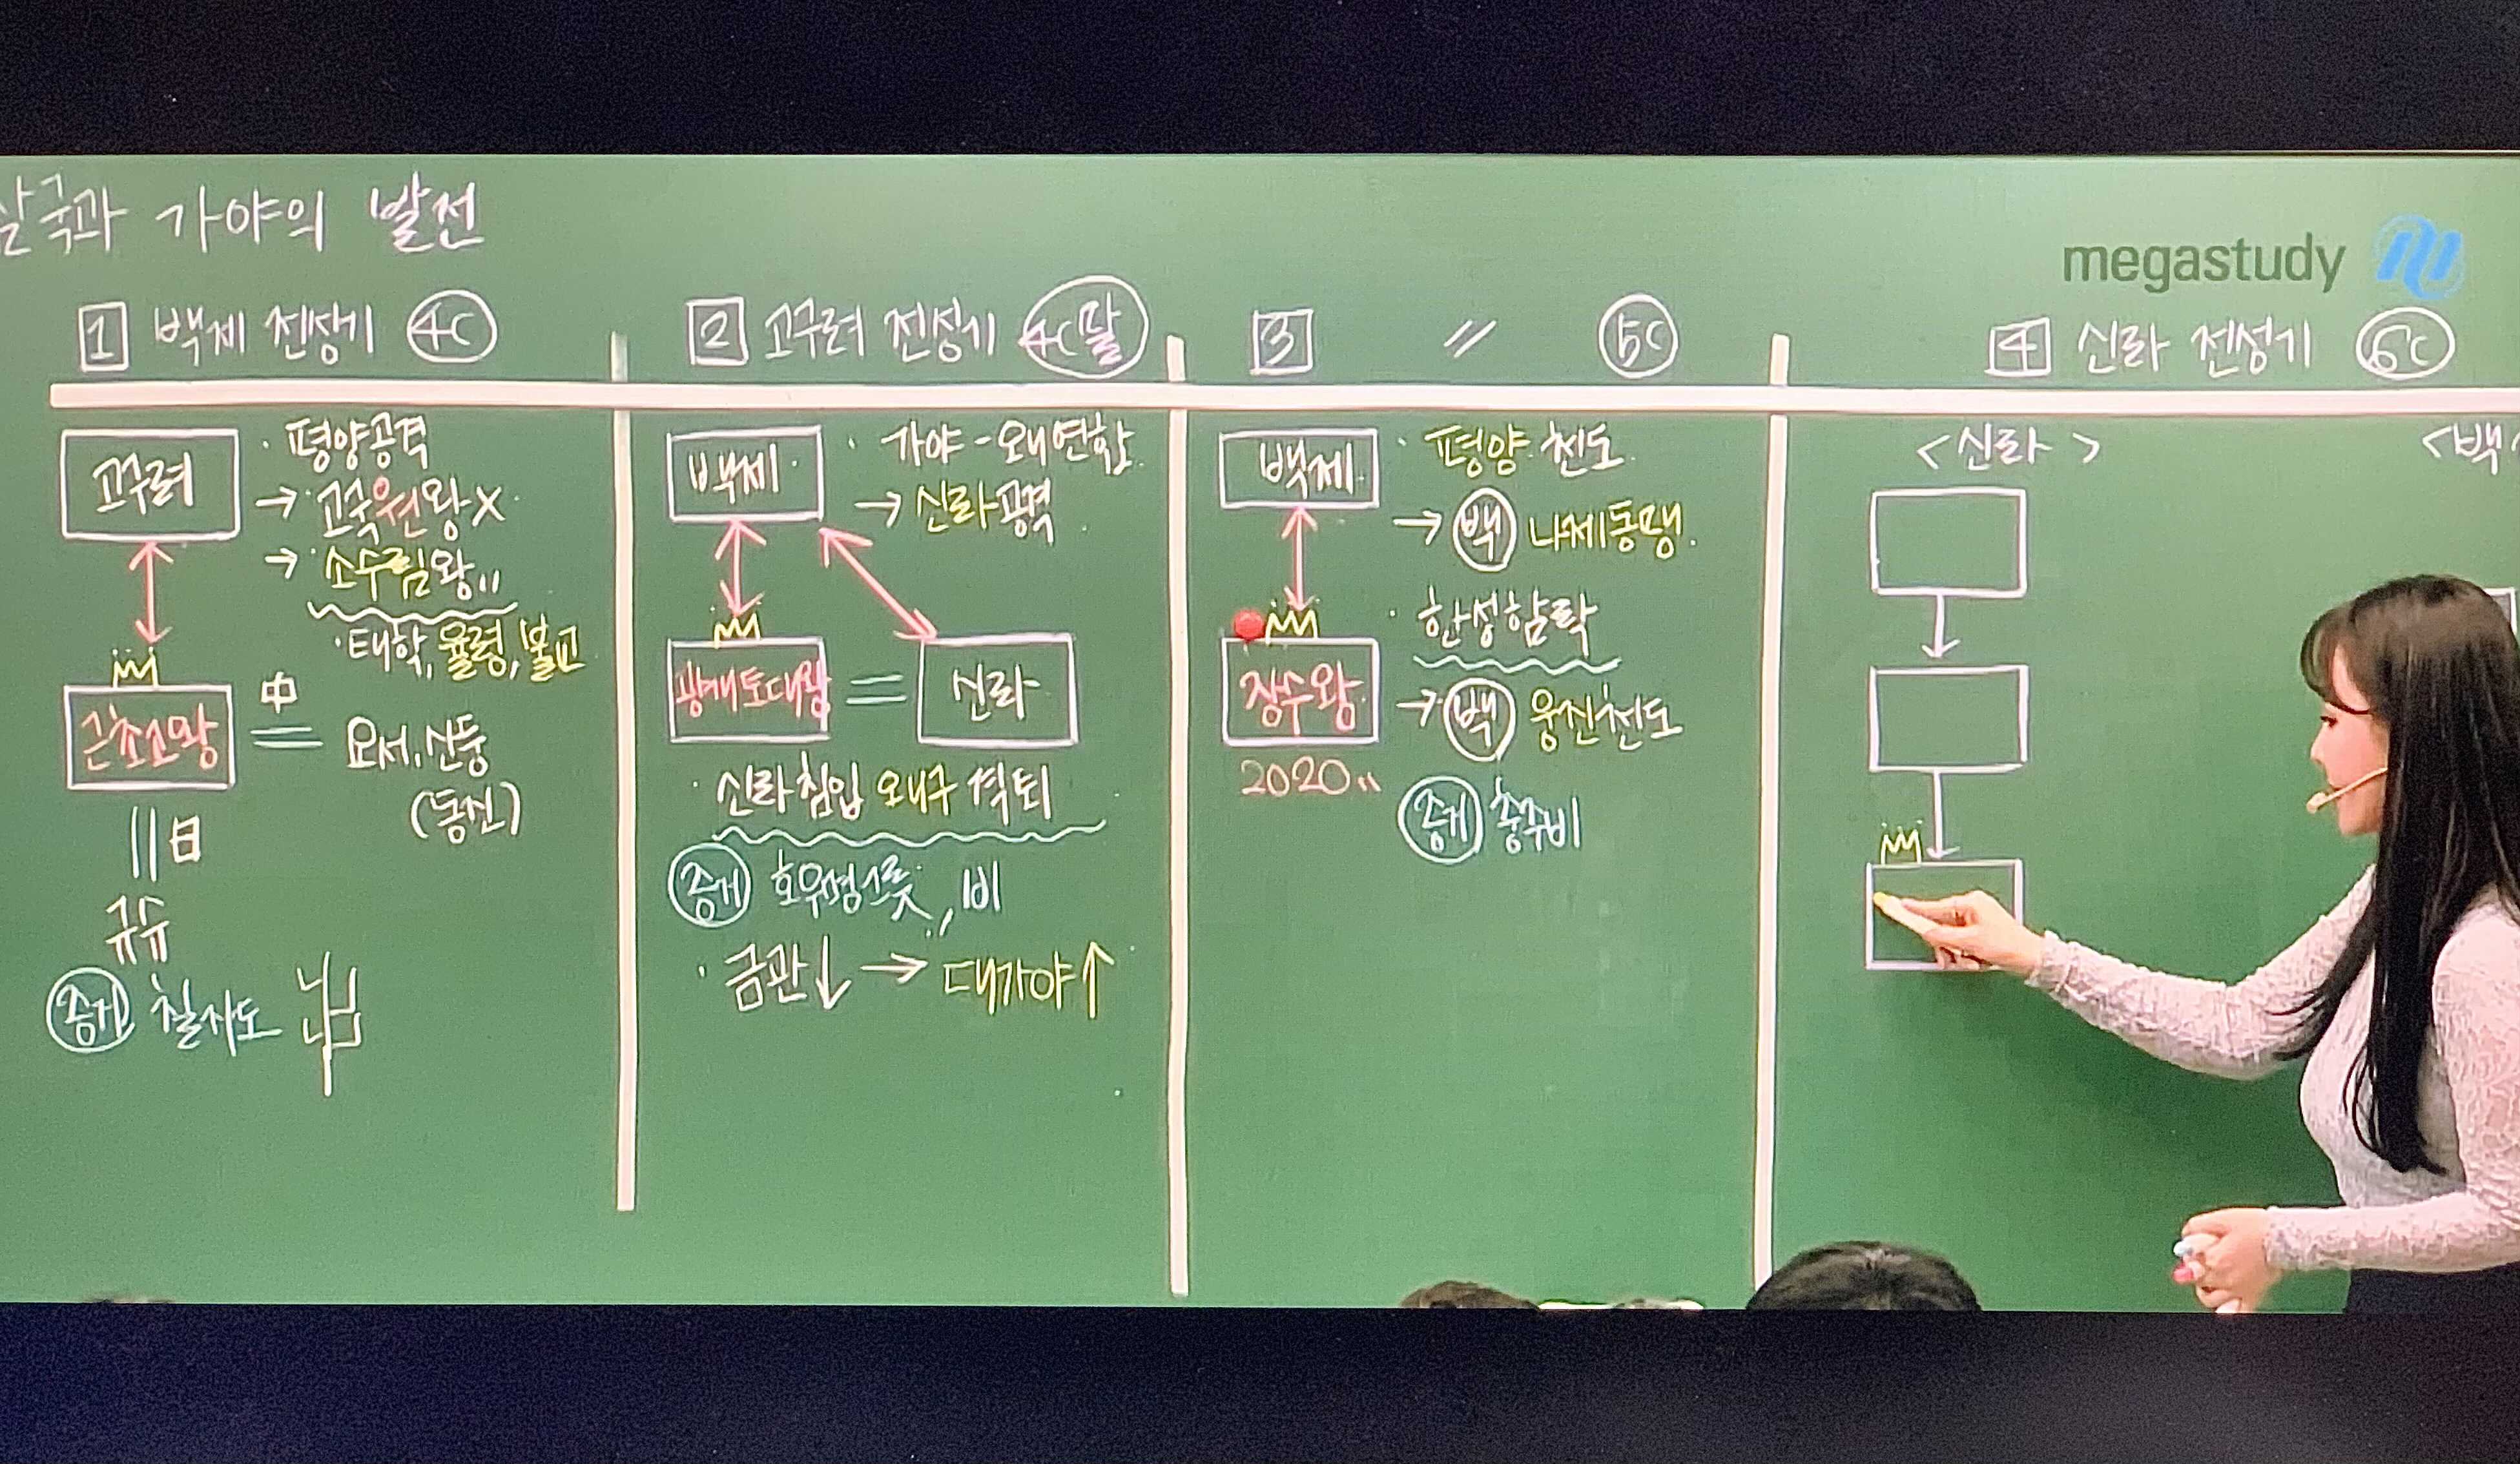 삼국과 가야의 발전
megastudy
1 백제 전성기 4C
고구려
· 평양공격
→ 고국원왕 X
→ 소수림왕
· 태학, 율령, 불교
근초고왕
中
요서, 산둥
(동진)
日
규슈
증거 칠지도
2 고구려 전성기 4C말
백제
· 가야-왜연합
→ 신라공격
광개토대왕
신라
· 신라침입 왜구 격퇴
증거 호우명그릇, 비
· 금관↓ → 대가야↑
3 〃 5C
백제
· 평양 천도
→ 백 나제동맹
· 한성함락
장수왕
→ 백 웅진천도
2020
증거 충주비
4 신라 전성기 6C
<신라>
<백